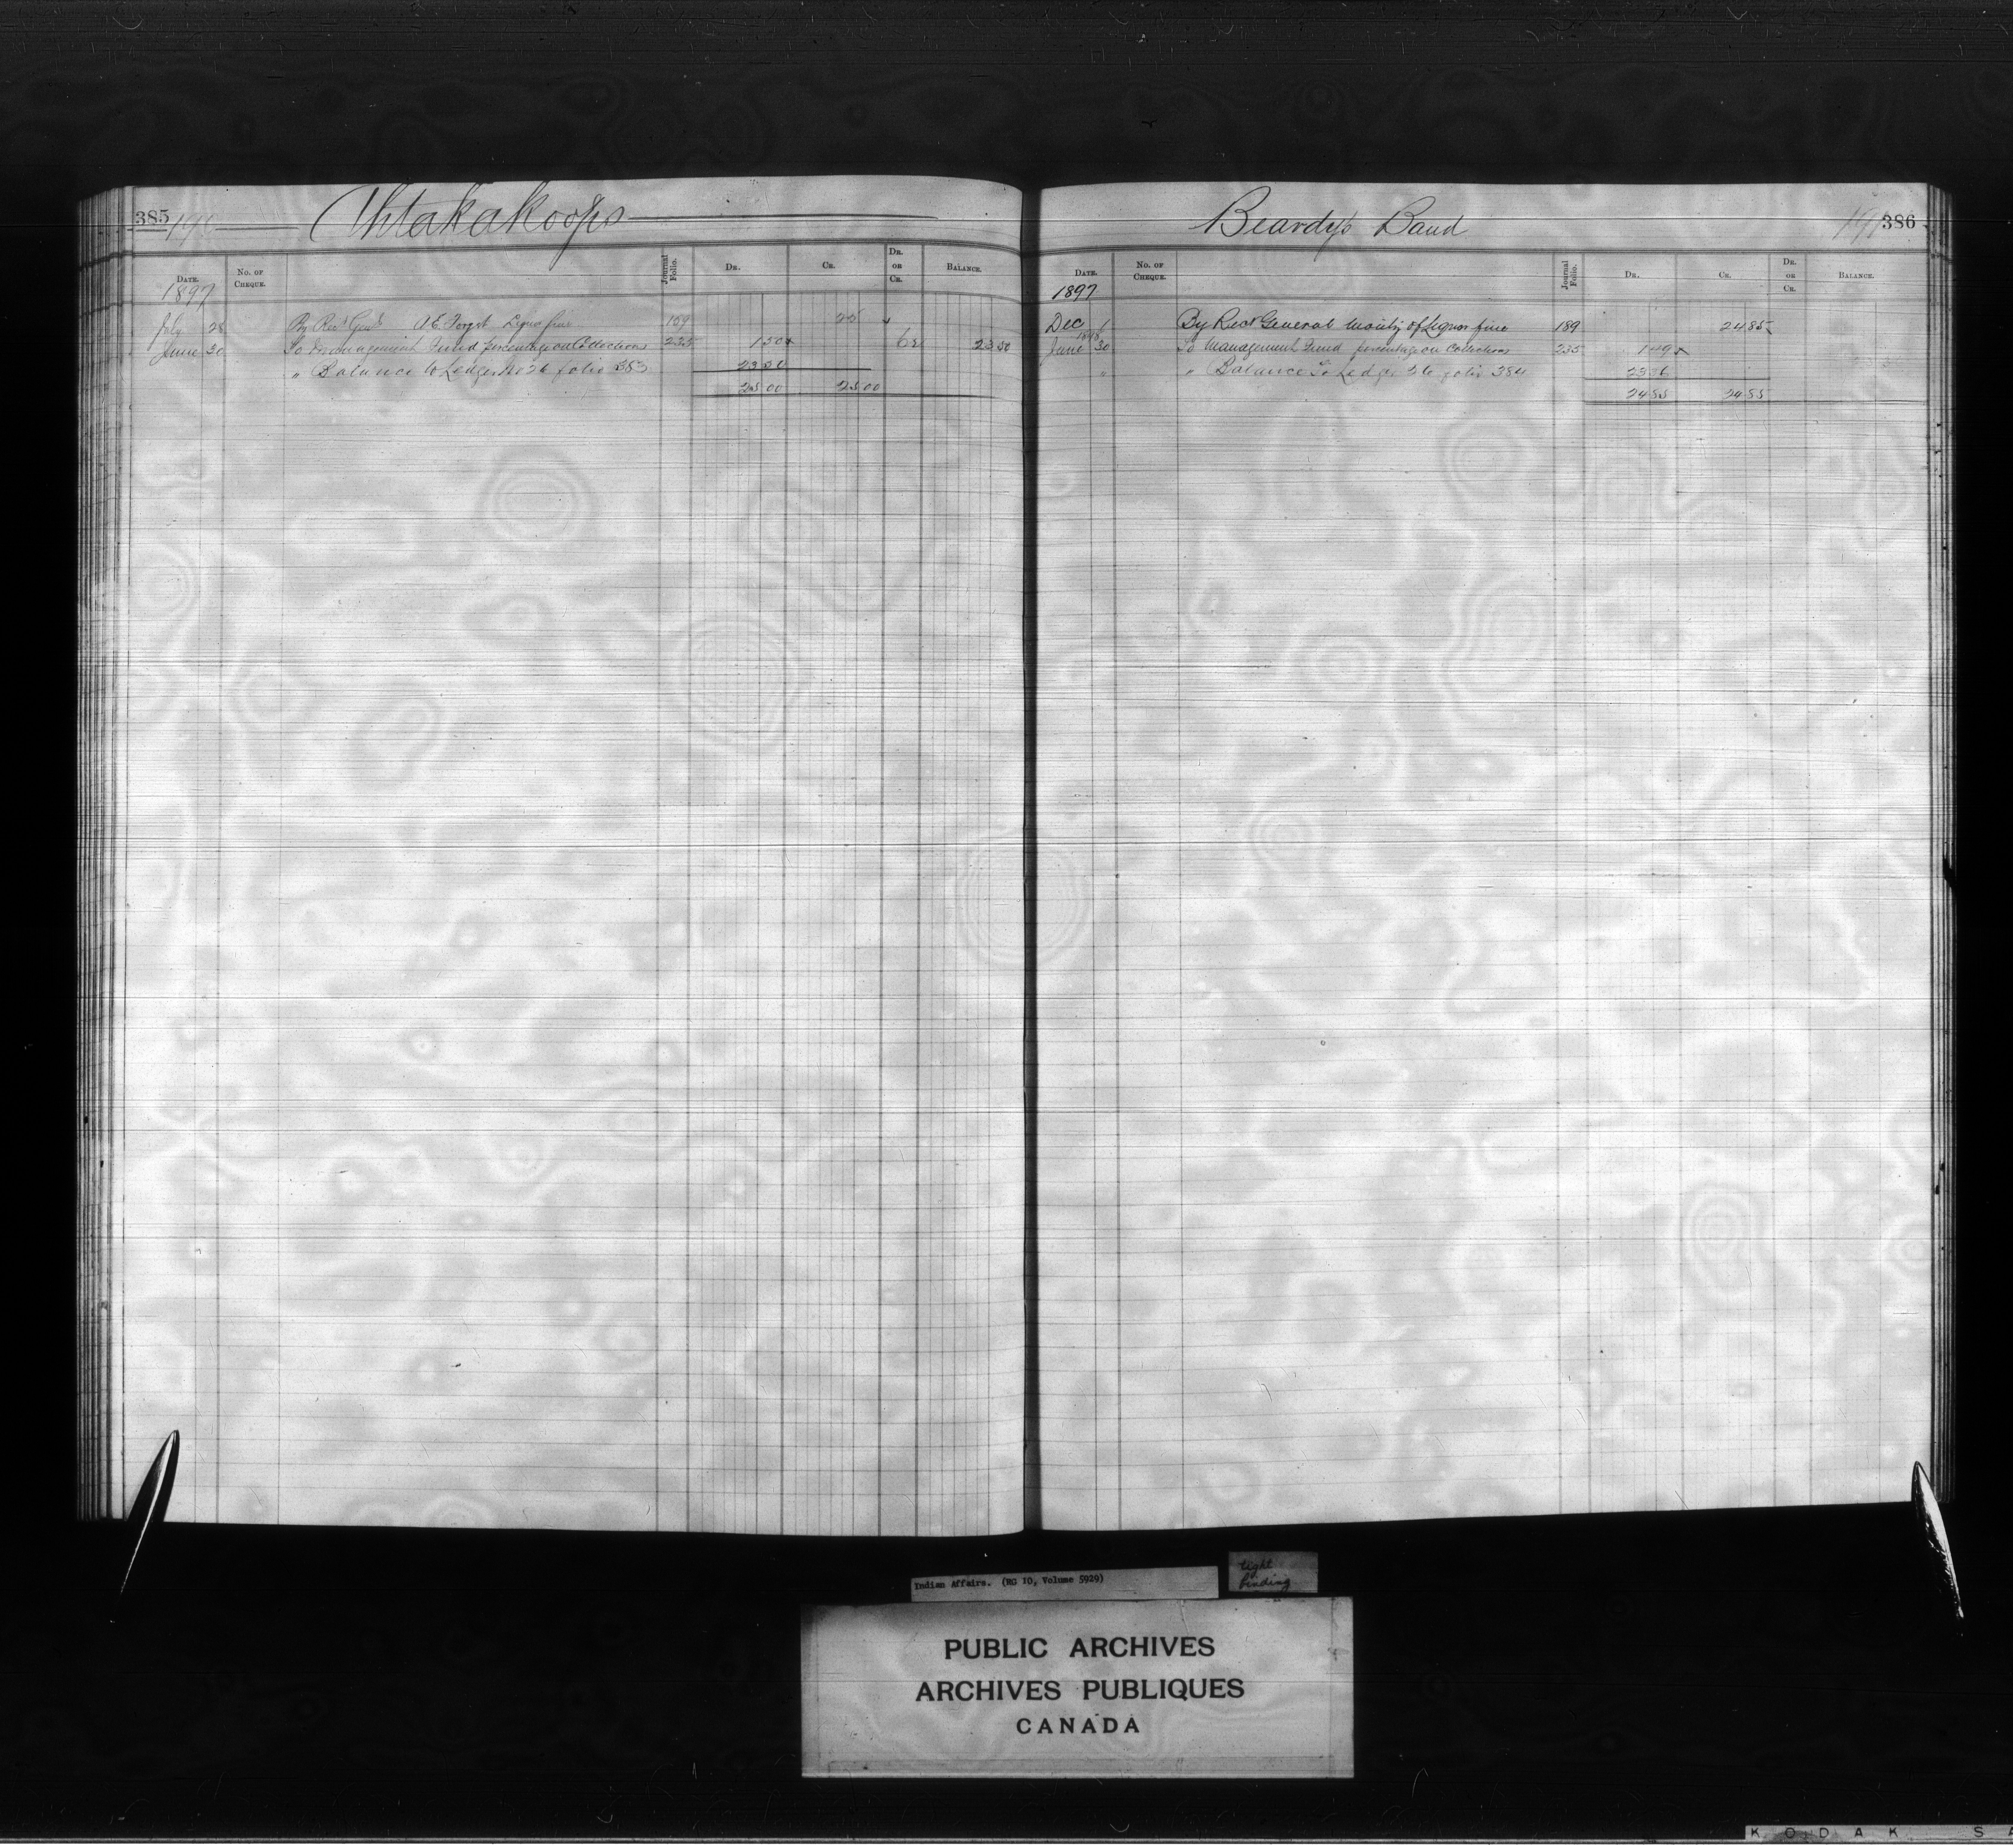 385 190 Ahtakakoops
DATE. No. OF CHEQUE. Journal Folio. DR. CR. DR. OR CR. BALANCE.
1897
July 28 By Recr Genl A E Forget Liquor fine 159 25
June 30 To Management Fund percentage on Collections 235 1 50 Cr 23 50
" Balance to Ledger No 26 folio 383 23 50
25 00 25 00
Beardy's Band 191 386
DATE. No. OF CHEQUE. Journal Folio. DR. CR. DR. OR CR. BALANCE.
1897
Dec 1 By Recr General moiety of Liquor fine 189 24 85
1898
June 30 To Management Fund percentage on Collections 235 1 49
" " Balance To Ledger 26 folio 384 23 36
24 85 24 85
Indian Affairs. (RG 10, Volume 5929)
tight binding
PUBLIC ARCHIVES
ARCHIVES PUBLIQUES
CANADA
KODAK SA